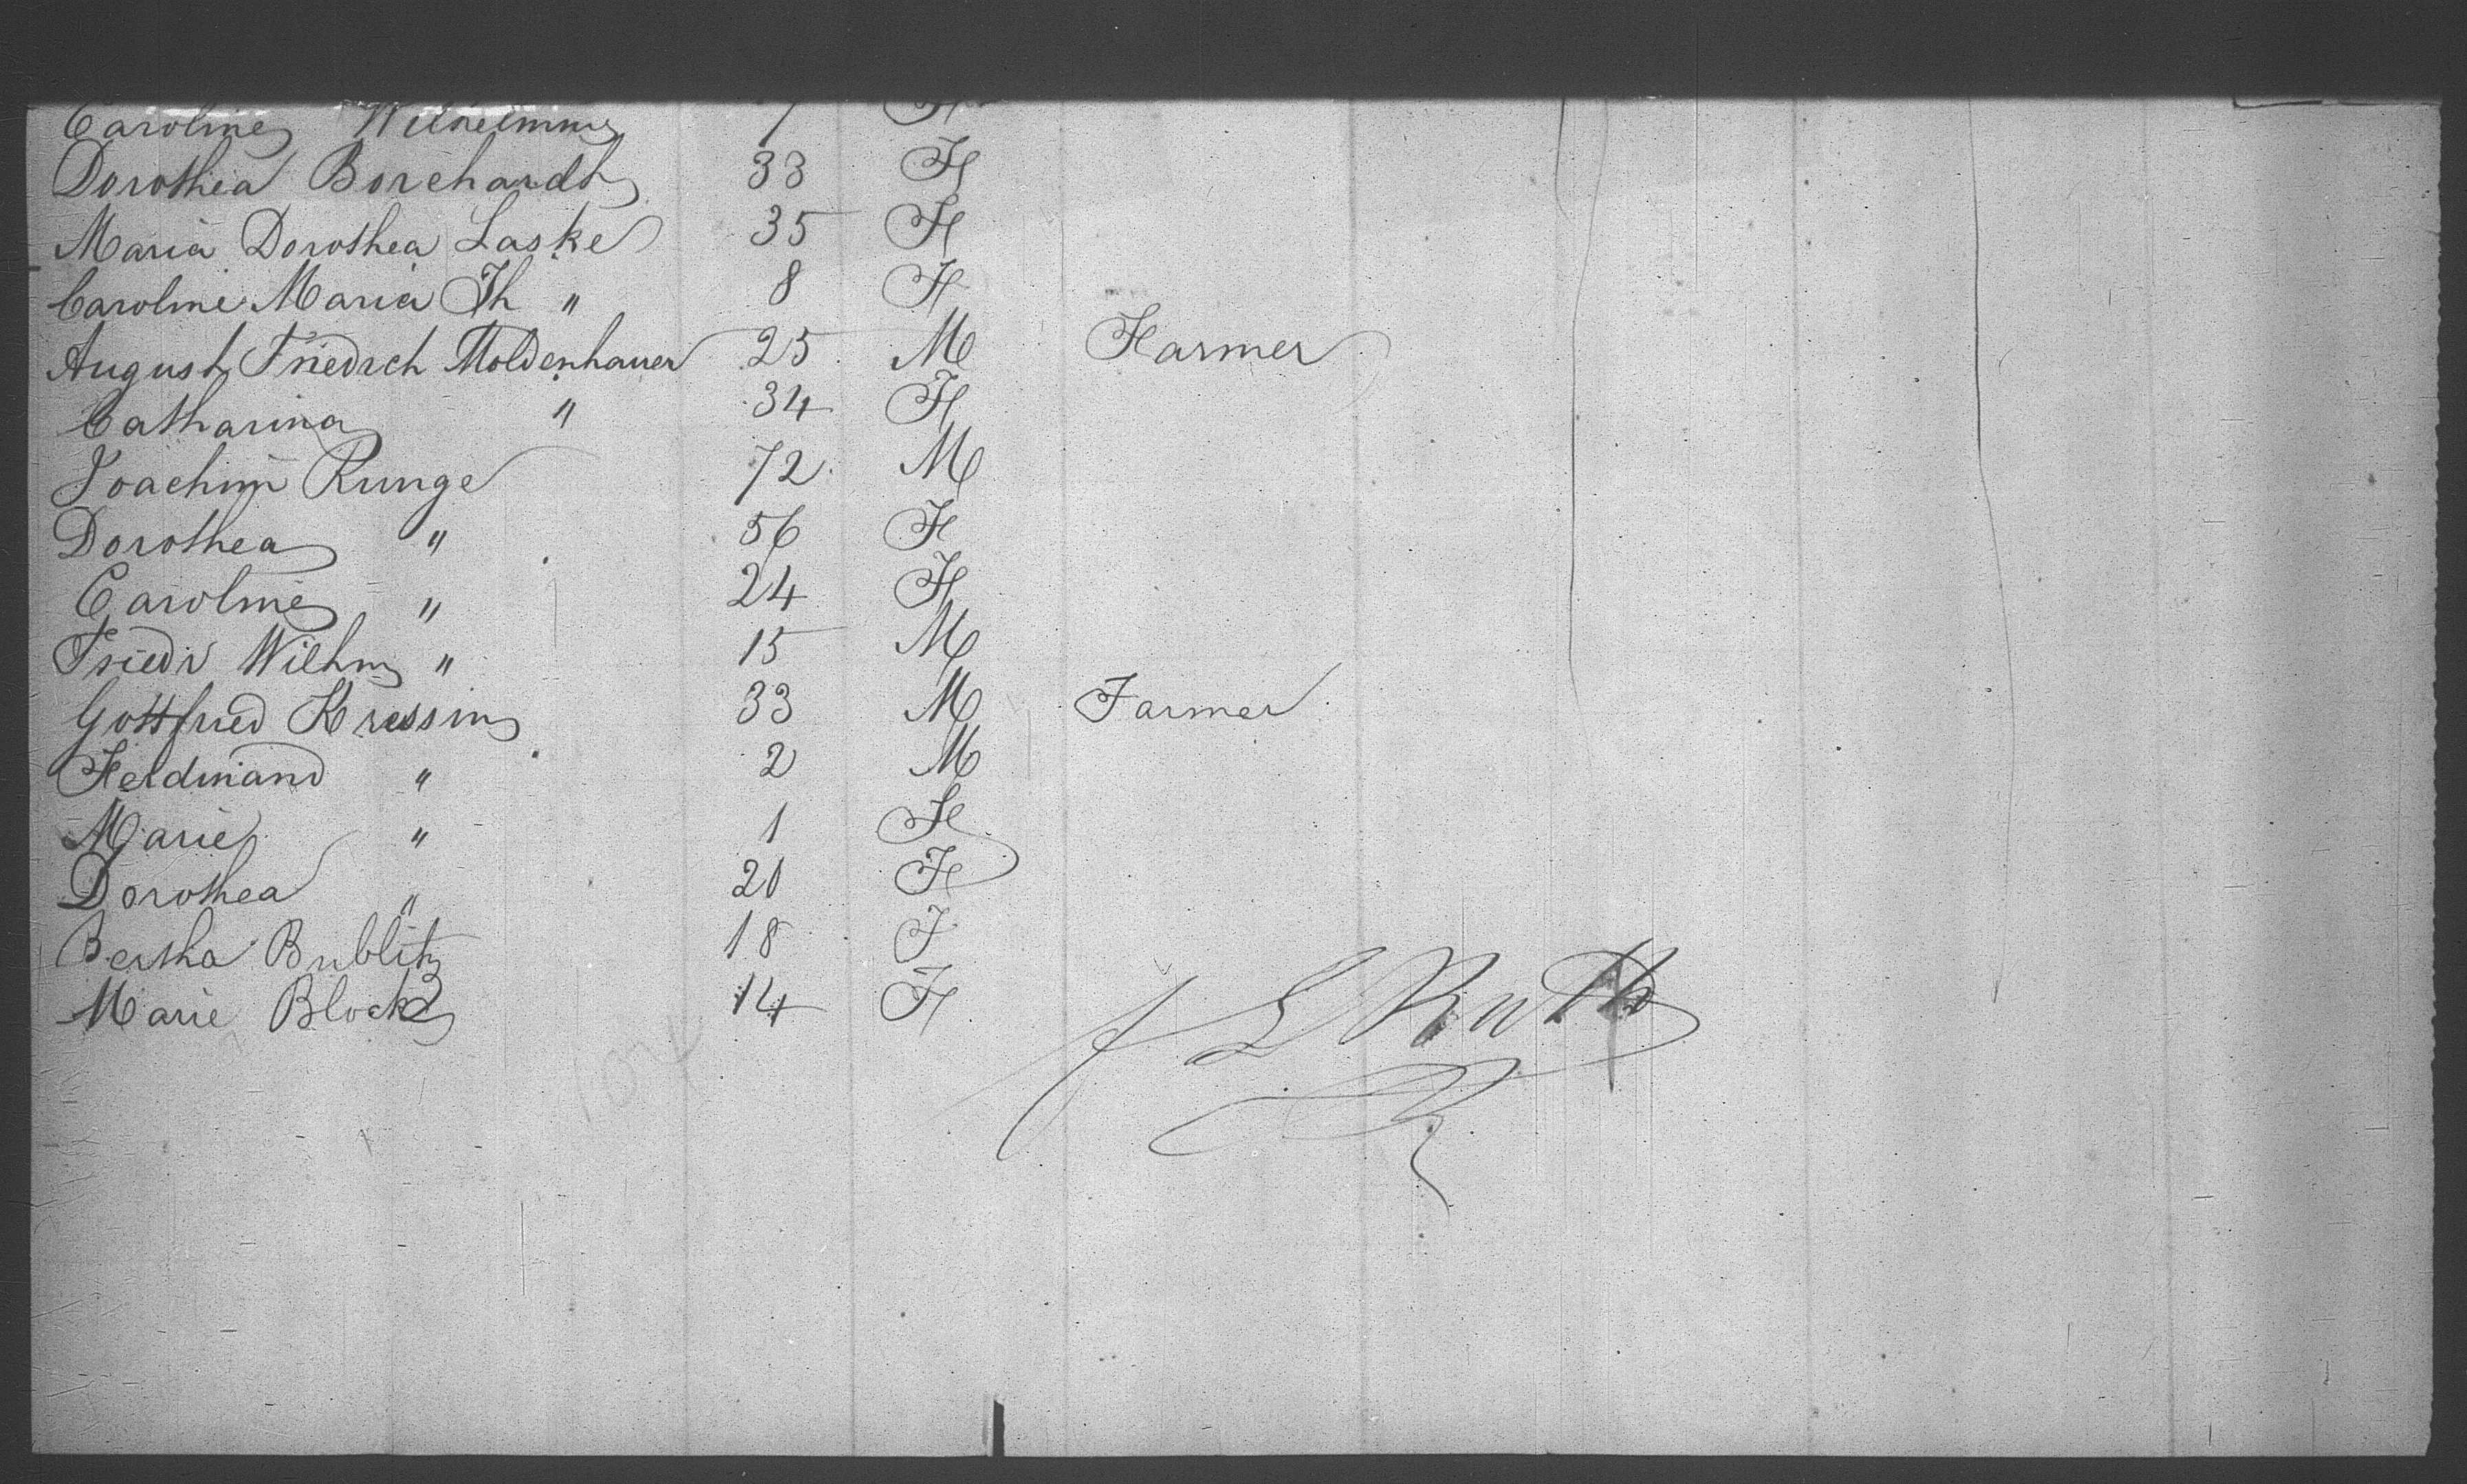 Caroline Wilhelmine 7 F
Dorothea Borchardt 33 F
Maria Dorothea Laske 35 F
Caroline Maria Th " 8 F
August Friedrch Moldenhauer 25 M Farmer
Catharina " 34 F
Joachim Runge 72 M
Dorothea " 56 F
Caroline " 24 F
Friedr Wilhm " 15 M
Gottfried Kressin 33 M Farmer
Ferdinand " 2 M
Marie " 1 F
Dorothea " 20 F
Bertha Bublitz 18 F
Marie Block 14 F